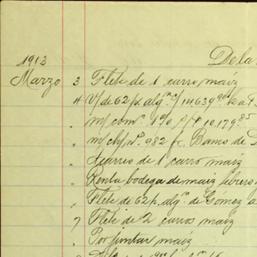 1913
De la
Marzo 3 Flete de 1 carro maiz
4 V/ de 62 p/ algn
" m/ comn 1% s/ $ 10,179.85
" m/ ch/ No. 982 fc. Banco de
" Acarreo de 1 carro maiz
" Renta bodega de maiz febrero
" Flete de 62 p/ alg. de Gomez a
7 Flete de 2 carros maiz
" Por juntar maiz